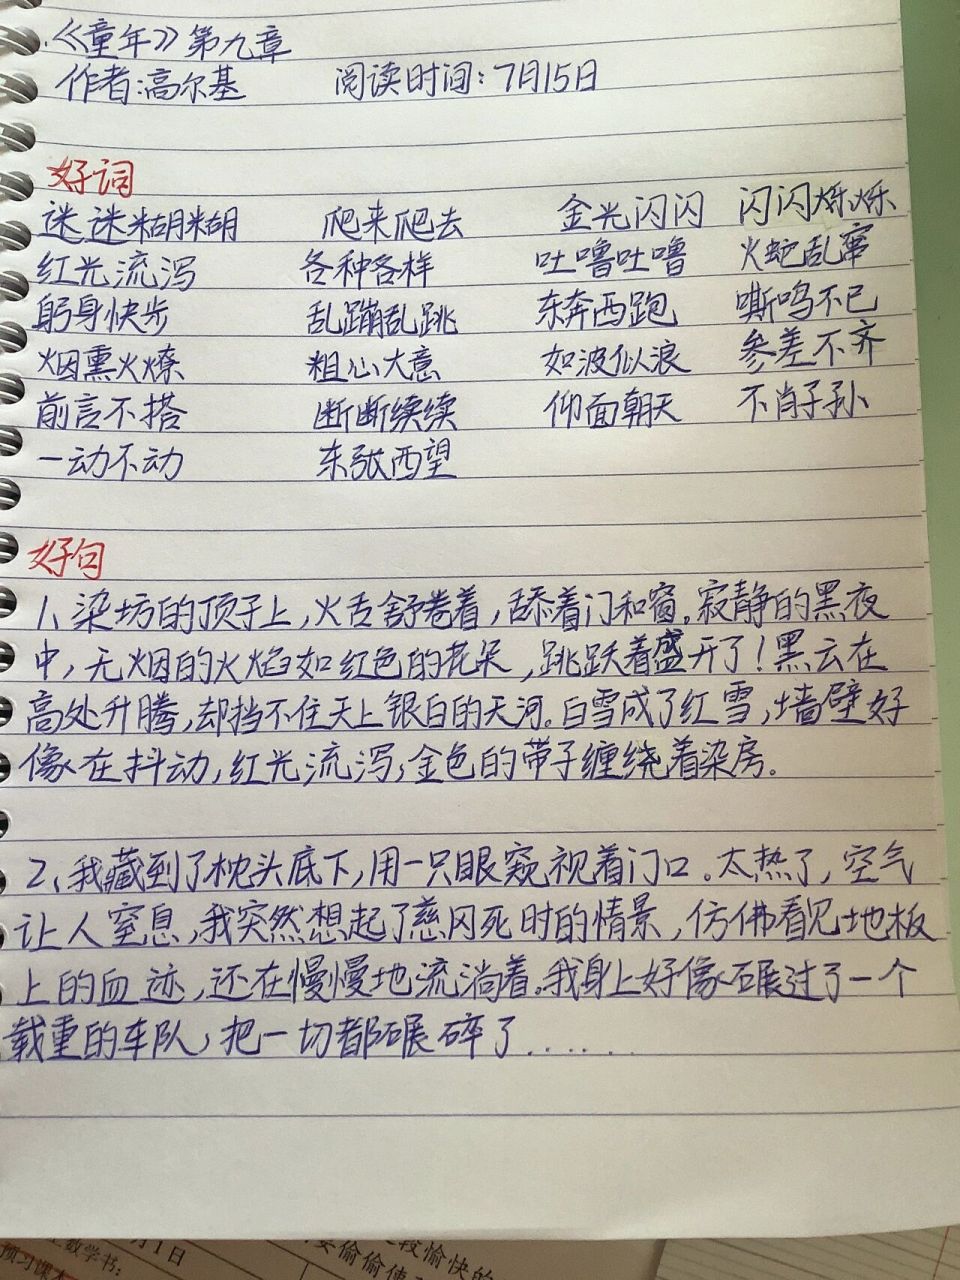 《童年》第九章
作者:高尔基 阅读时间:7月15日
好词
迷迷糊糊 爬来爬去 金光闪闪 闪闪烁烁
红光流泻 各种各样 吐噜吐噜 火蛇乱窜
躬身快步 乱蹦乱跳 东奔西跑 嘶鸣不已
烟熏火燎 粗心大意 如波似浪 参差不齐
前言不搭 断断续续 仰面朝天 不肖子孙
一动不动 东张西望
好句
1、染坊的顶子上,火舌舒卷着,舔着门和窗。寂静的黑夜
中,无烟的火焰如红色的花朵,跳跃着盛开了!黑云在
高处升腾,却挡不住天上银白的天河。白雪成了红雪,墙壁好
像在抖动,红光流泻,金色的带子缠绕着染房。
2、我藏到了枕头底下,用一只眼窥视着门口。太热了,空气
让人窒息,我突然想起了慈冈死时的情景,仿佛看见地板
上的血迹,还在慢慢地流淌着。我身上好像碾过了一个
载重的车队,把一切都碾碎了......
月1日
预习课本
上数学书:
较愉快的
要偷偷使